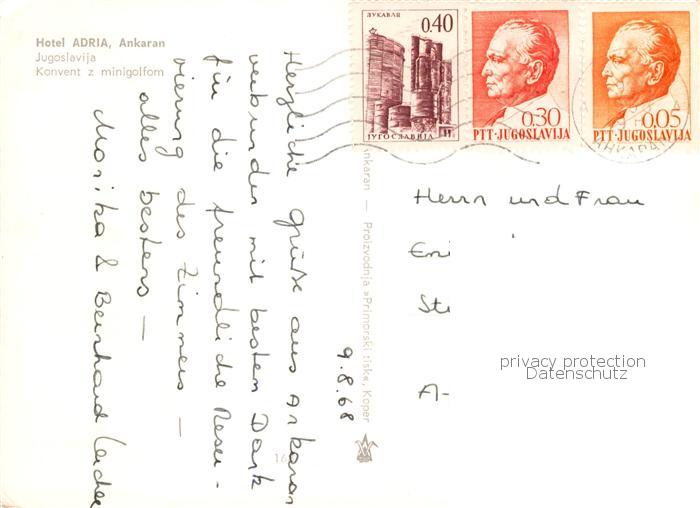 Hotel ADRIA, Ankaran
Jugoslavija
Konvent z minigolfom
ЛУКАВАЦ
0.40
ЈУГОСЛАВИЈА
0.30
PTT-JUGOSLAVIJA
0.05
PTT-JUGOSLAVIJA
Herzliche Grüße aus Ankaran
verbunden mit besten Dank
für die freundliche Reser-
vierung des Zimmers –
alles bestens –
Monika & Bernhard
9.8.68
Ankaran — Proizvodnja »Primorski tisk«, Koper
Herrn und Frau
Eni
Sti
A-
privacy protection
Datenschutz